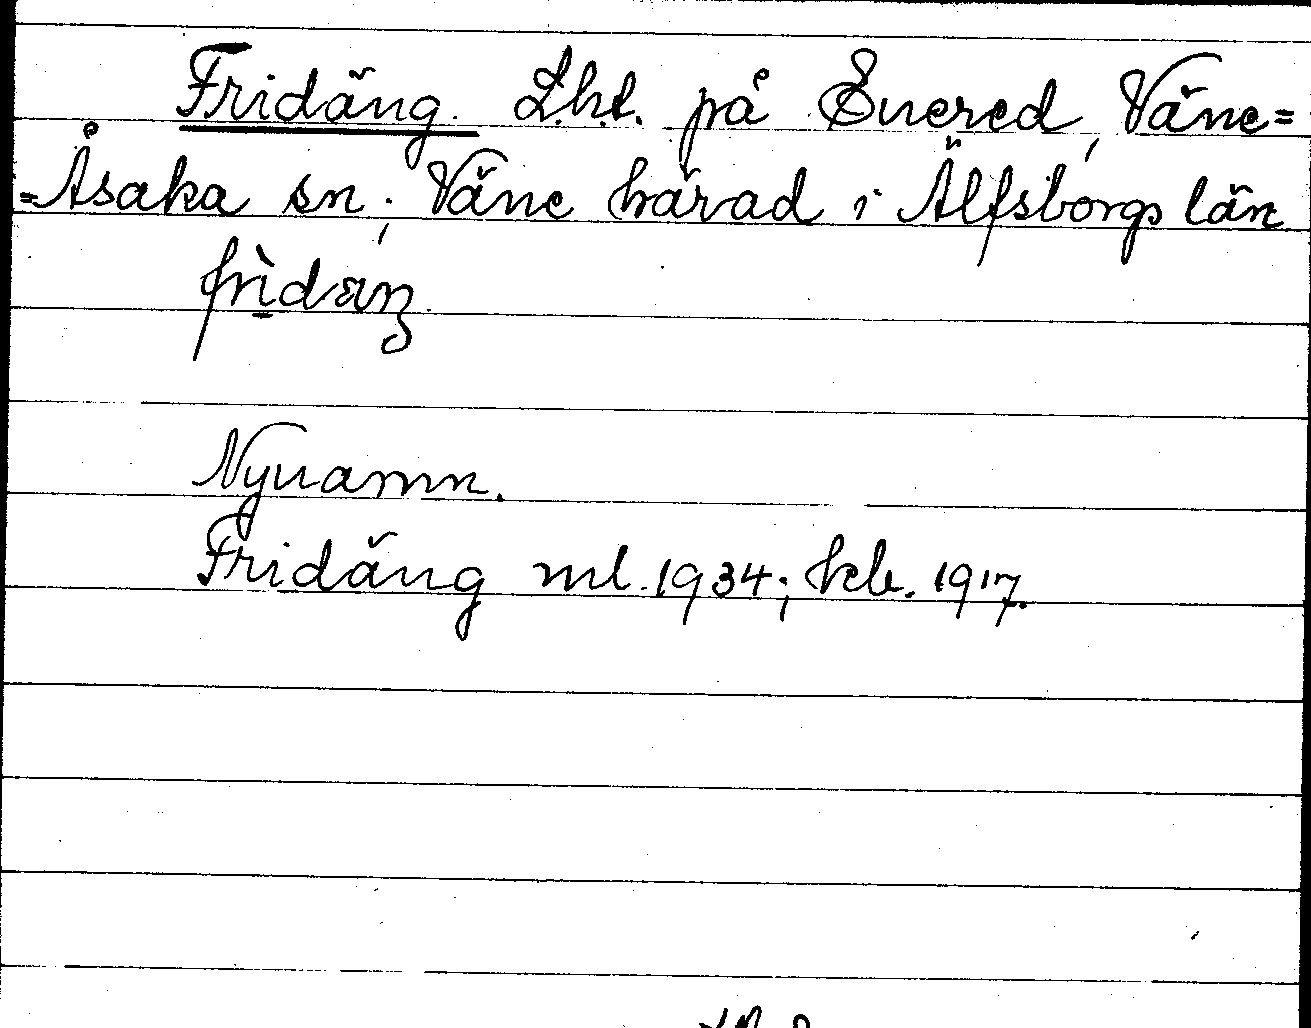 Fridäng. Lht. på Svered, Väne=
=Åsaka sn; Väne härad i Älfsborgs län
frìdäŋ
Nynamn.
Fridäng ml. 1934; kb. 1917.